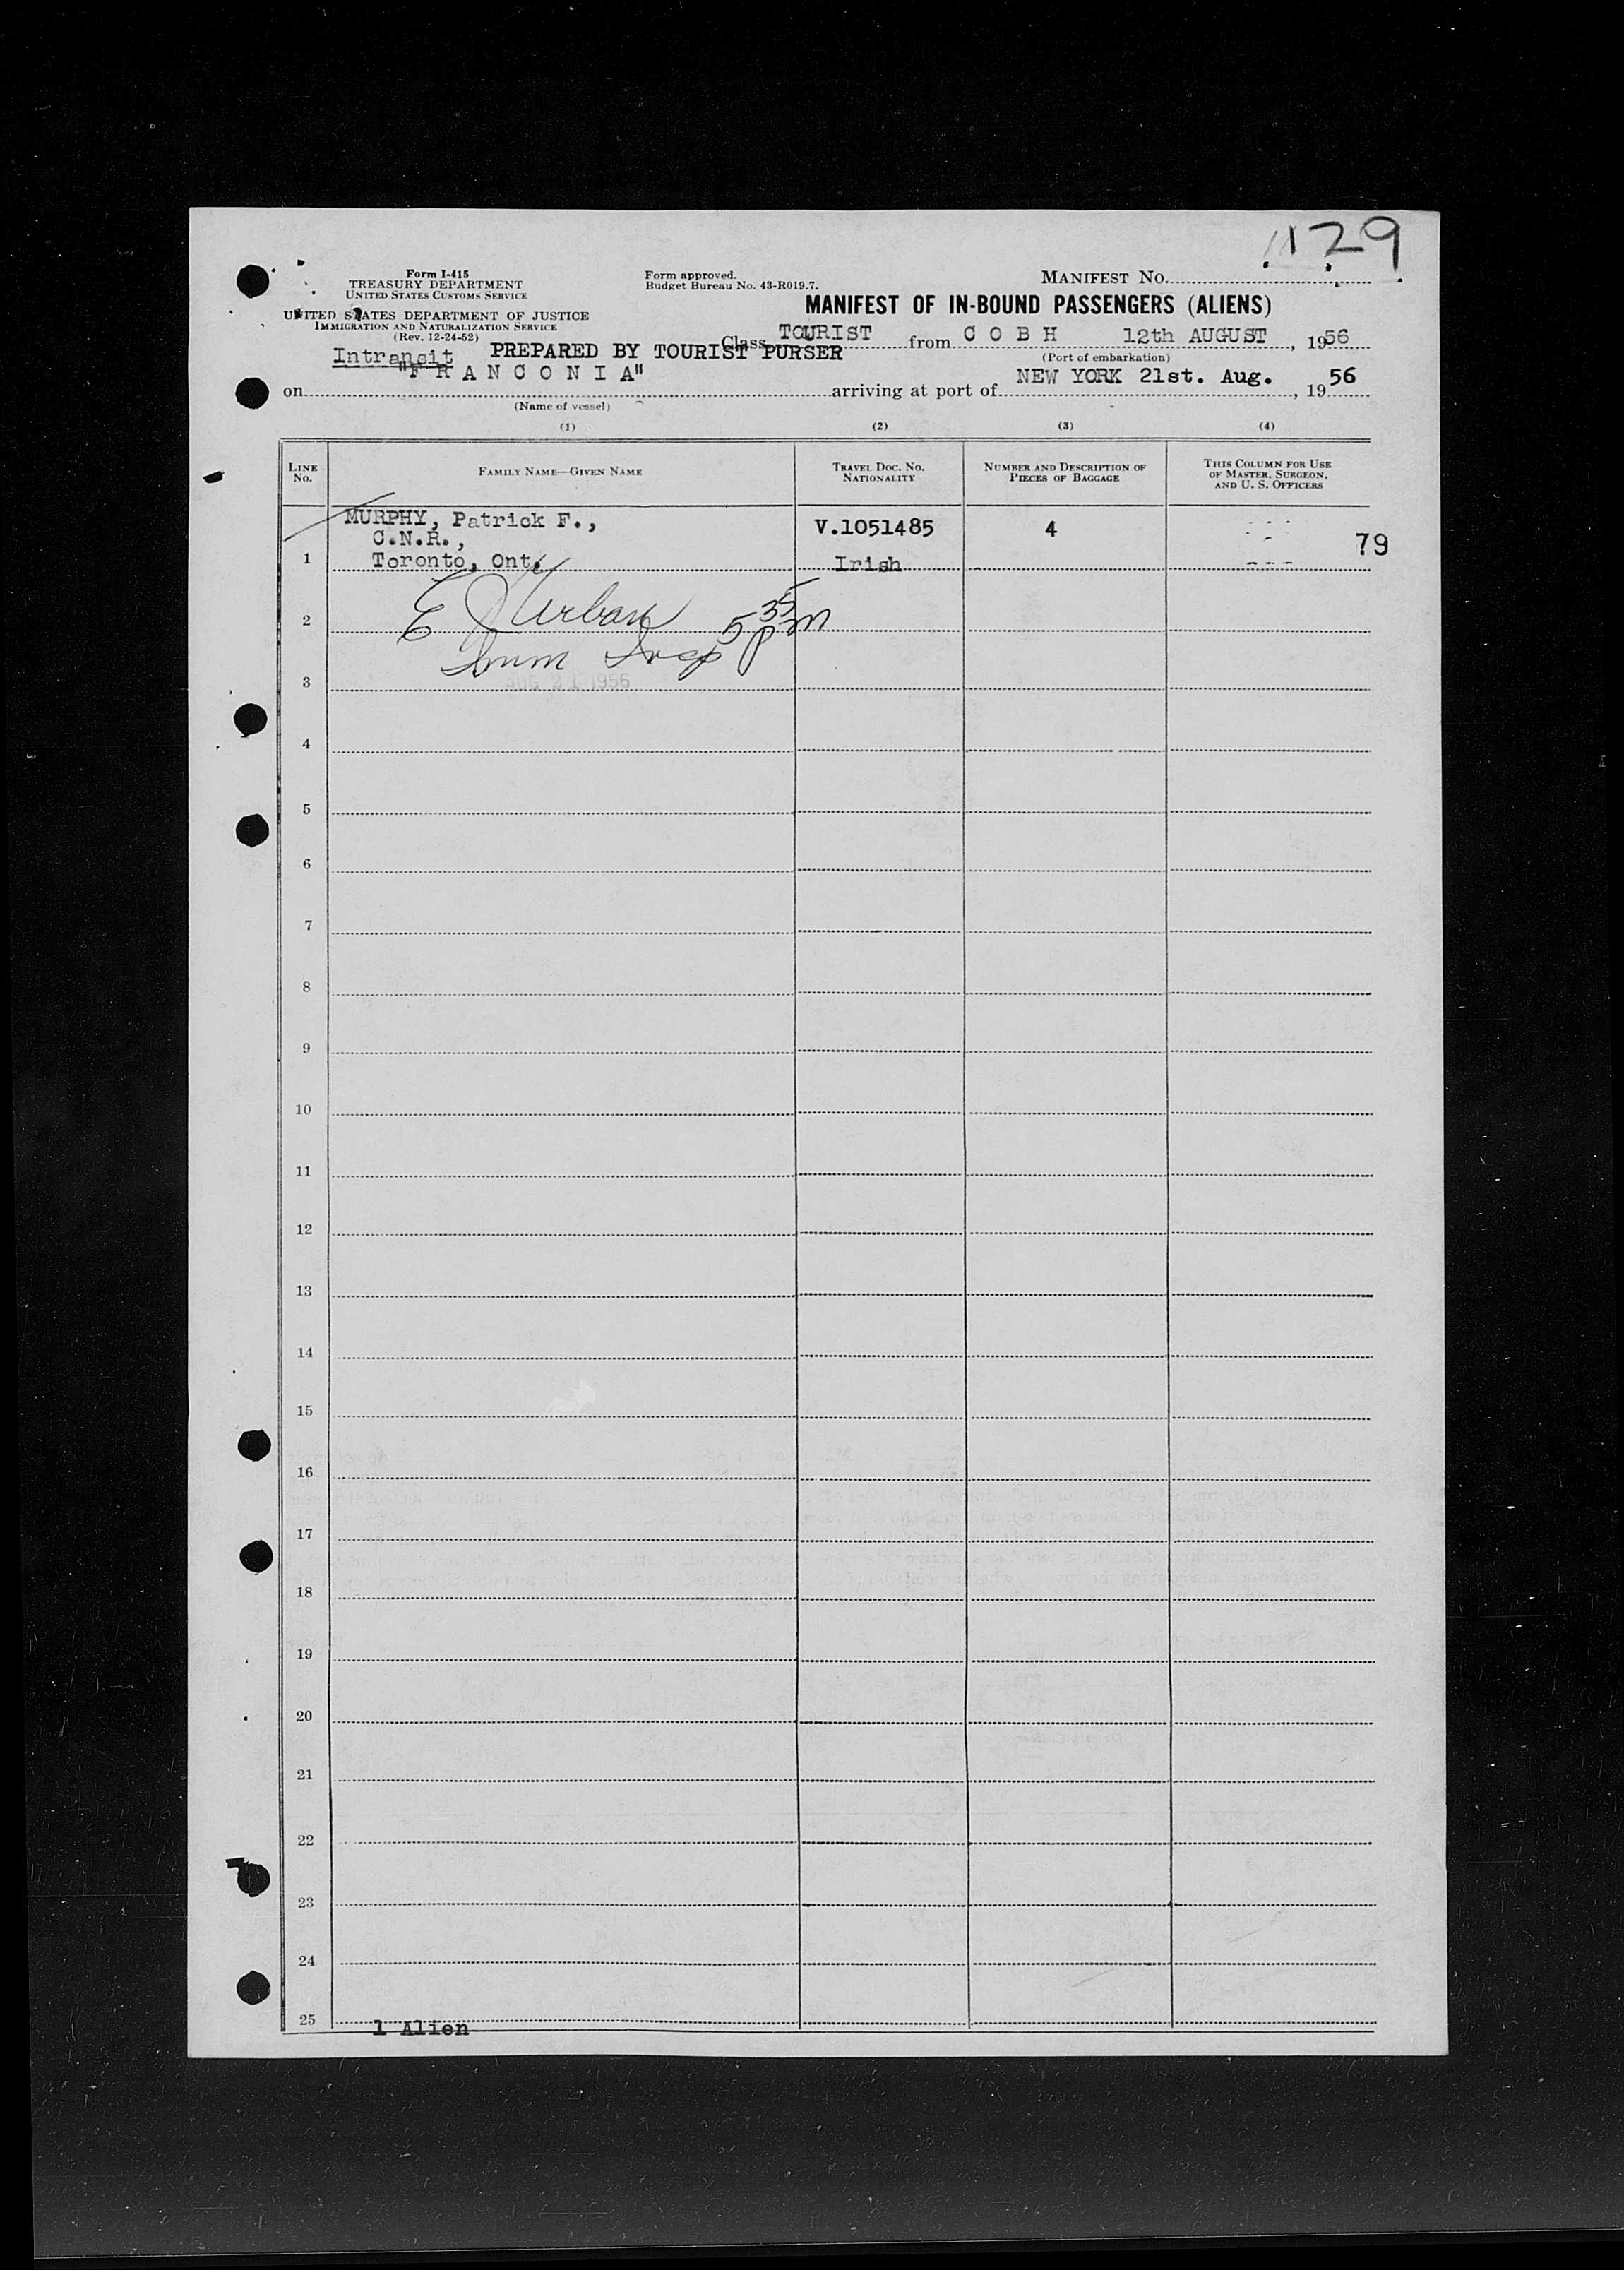 129
Form I-415
TREASURY DEPARTMENT
UNITED STATES CUSTOMS SERVICE
UNITED STATES DEPARTMENT OF JUSTICE
IMMIGRATION AND NATURALIZATION SERVICE
(Rev. 12-24-52)
Form approved.
Budget Bureau No. 43-R019.7.
MANIFEST NO.
MANIFEST OF IN-BOUND PASSENGERS (ALIENS)
Intransit PREPARED BY TOURIST PURSER
Class TOURIST from C O B H 12th AUGUST, 1956
(Port of embarkation)
on "F R A N C O N I A" arriving at port of NEW YORK 21st. Aug., 1956
(Name of vessel)
(1) (2) (3) (4)
LINE NO. FAMILY NAME—GIVEN NAME TRAVEL DOC. NO. NATIONALITY NUMBER AND DESCRIPTION OF PIECES OF BAGGAGE THIS COLUMN FOR USE OF MASTER, SURGEON, AND U. S. OFFICERS
MURPHY, Patrick F., V.1051485 4
C.N.R., 79
1 Toronto, Ont. Irish
2 E J Urban 5 35 pm
Imm Insp
3 AUG 21 1956
4
5
6
7
8
9
10
11
12
13
14
15
16
17
18
19
20
21
22
23
24
25 1 Alien